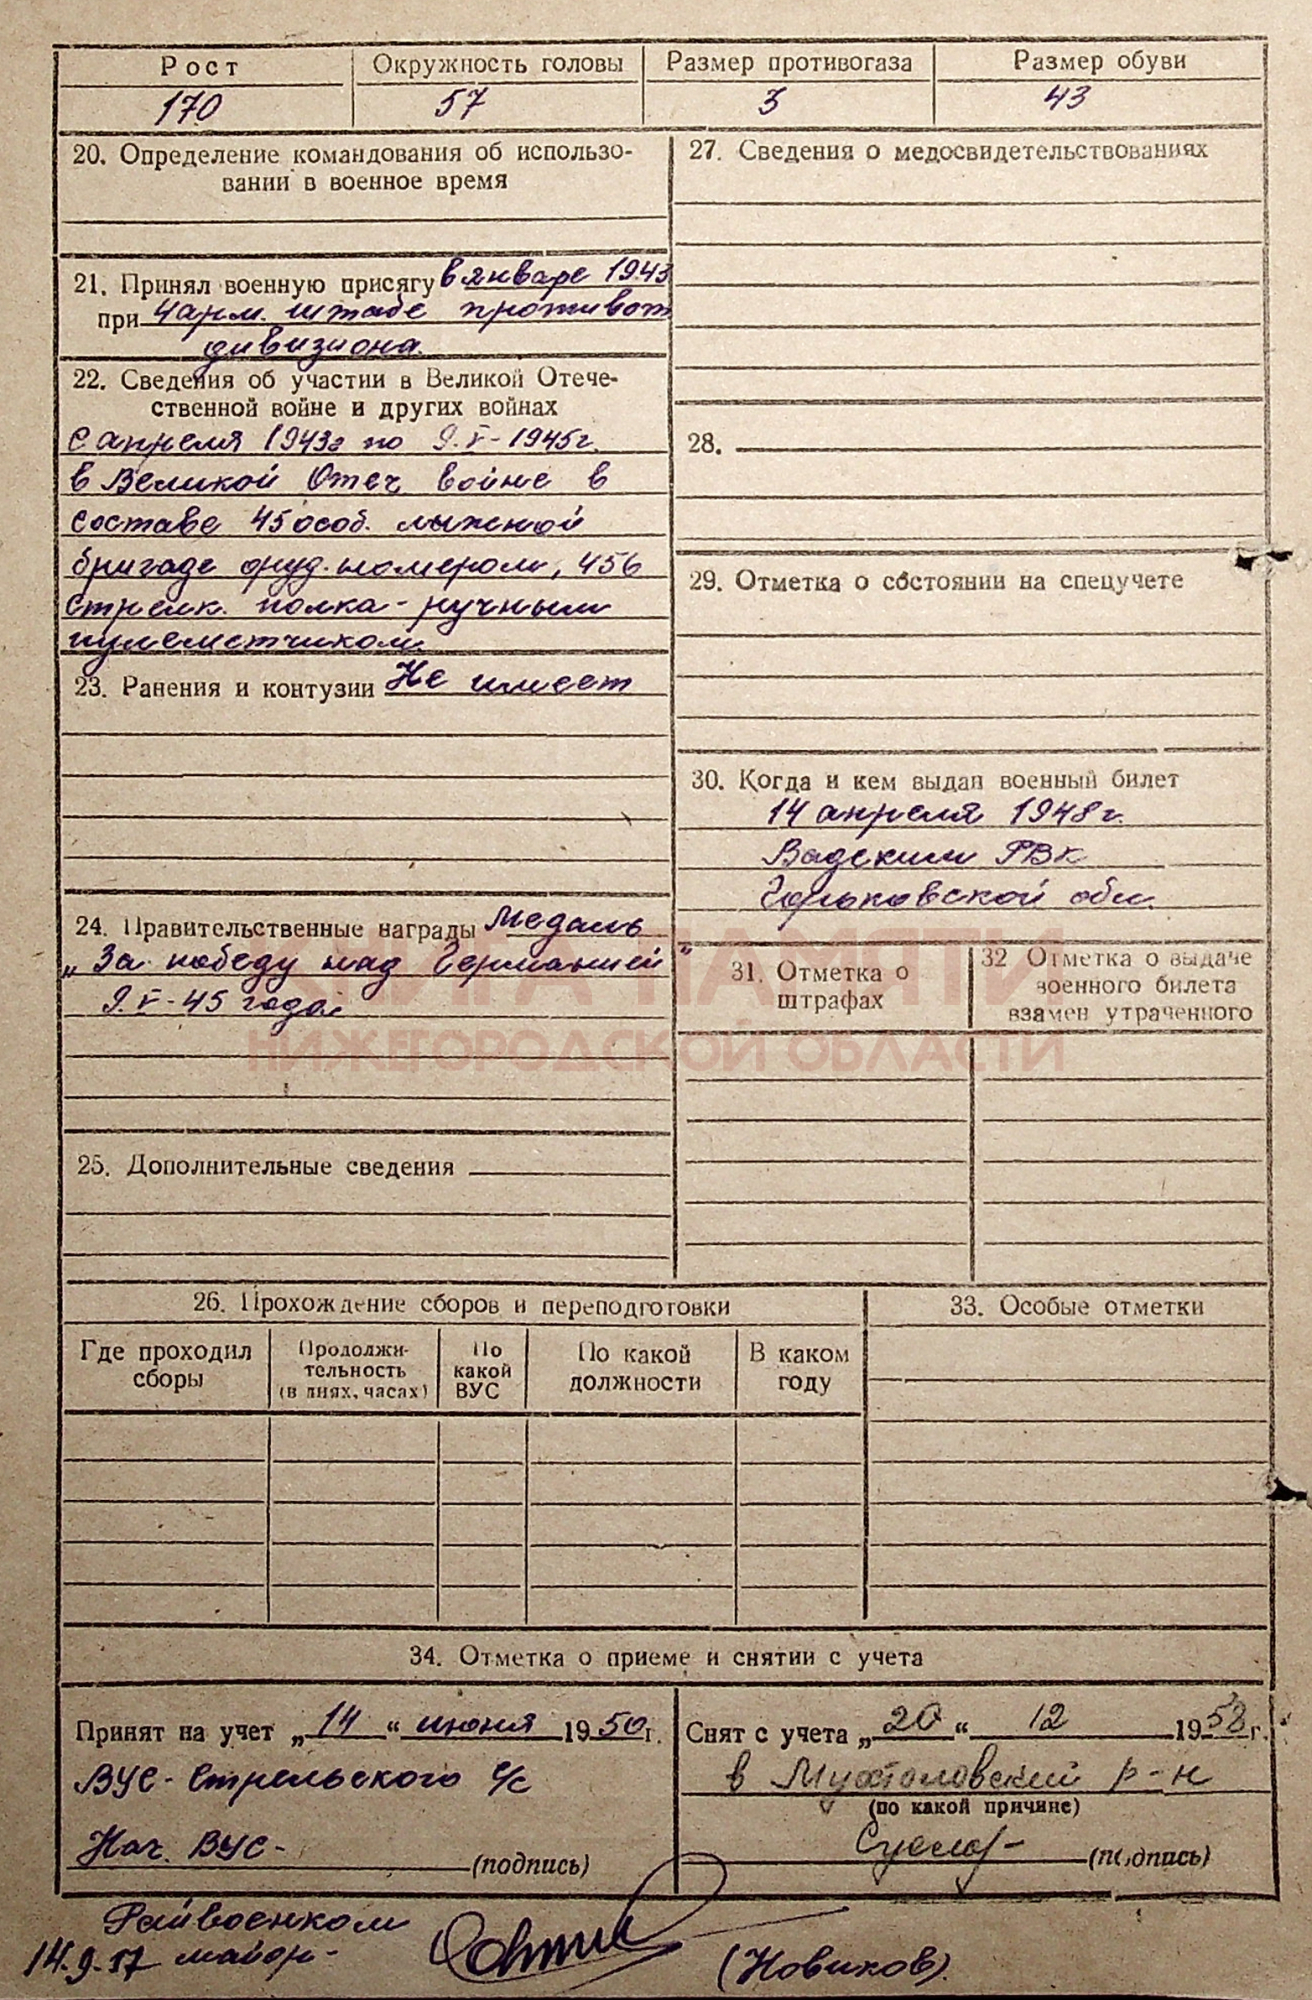 Рост Окружность головы Размер противогаза Размер обуви
170 57 3 43
20. Определение командования об использо-
вании в военное время
21. Принял военную присягу в январе 1943
при 4 арм. штабе противот
дивизиона.
22. Сведения об участии в Великой Отече-
ственной войне и других войнах
с апреля 1943г по 9.V-1945г.
в Великой Отеч войне в
составе 45 особ. лыжной
бригаде оруд. номером, 456
стрелк. полка - ручным
пулеметчиком.
23. Ранения и контузии Не имеет
24. Правительственные награды Медаль
„За победу над Германией"
9.V-45 года
25. Дополнительные сведения
27. Сведения о медосвидетельствованиях
28.
29. Отметка о состоянии на спецучете
30. Когда и кем выдан военный билет
14 апреля 1948г.
Вадским РВК
Горьковской обл.
31. Отметка о
штрафах
32 Отметка о выдаче
военного билета
взамен утраченного
КНИГА ПАМЯТИ
НИЖЕГОРОДСКОЙ ОБЛАСТИ
26. Прохождение сборов и переподготовки
Где проходил
сборы
Продолжи-
тельность
(в днях, часах)
По
какой
ВУС
По какой
должности
В каком
году
33. Особые отметки
34. Отметка о приеме и снятии с учета
Принят на учет „14“ июня 1950г.
ВУС- Стрельского с/с
Нач. ВУС-
(подпись)
Снят с учета „20“ 12 1958г.
в Мухтоловский р-н
(по какой причине)
(подпись)
Райвоенком
14.9.57 майор-
(Новиков).